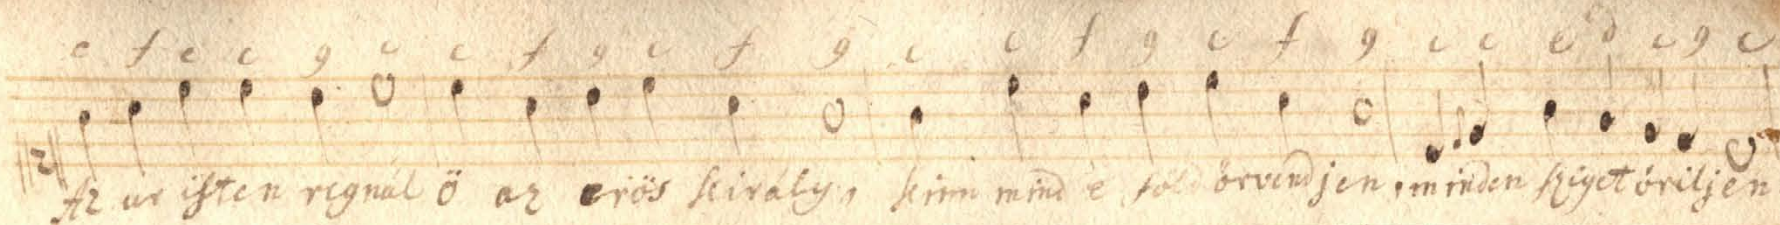 c f e c g c c f g c f g c c f g c f g c c e d c g c
Az ur isten regnál ö az erös király, kinn mind e föld örvendjen, minden sziget óriljen